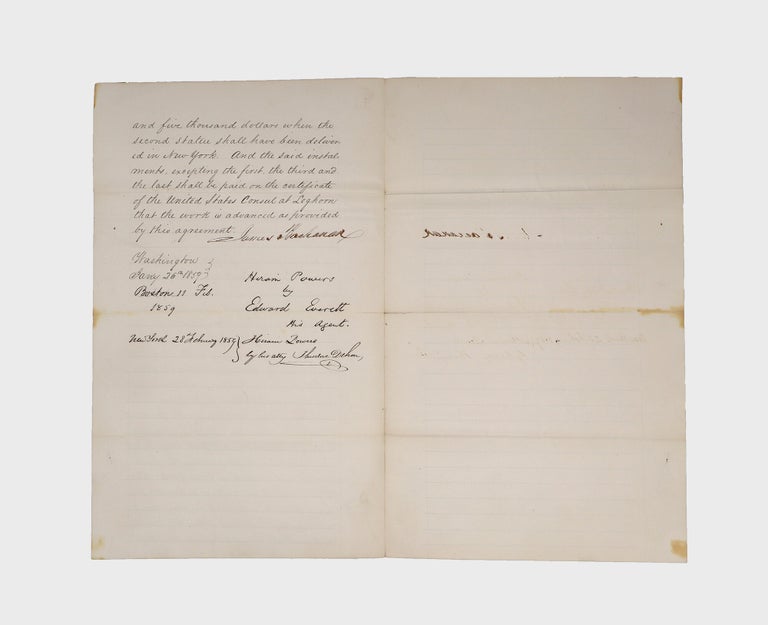 and five thousand dollars when the
second statue shall have been deliver
ed in New York. And the said instal
ments, excepting the first, the third and
the last shall be paid on the certificate
of the United States Consul at Leghorn
that the work is advanced as provided
by this agreement. James Buchanan
Washington
Jany 26th 1859
Hiram Powers
Boston 11 Feb.
by
1859
Edward Everett
His Agent.
New York 28 February 1859 Hiram Powers
by his atty Theodore Dehon